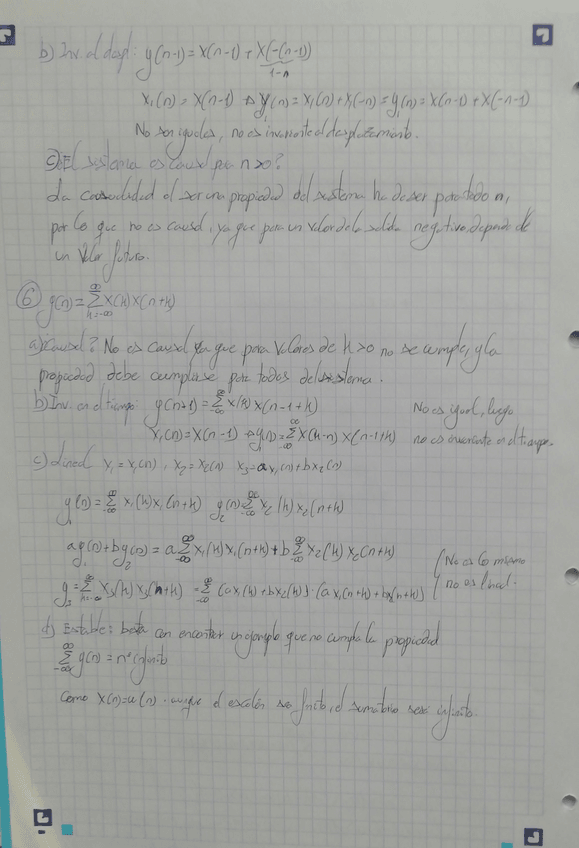 b) Inv. al despl: y(n-1) = x(n-1) + x(-(n-1))
1-n
x₁(n) = x(n-1) → y(n) = x₁(n) + x₁(-n) = y₁(n) = x(n-1) + x(-n-1)
No son iguales, no es invariante al desplazamiento.
c) ¿El sistema es causal para n>0?
La causalidad al ser una propiedad del sistema ha de ser para todo n,
por lo que no es causal, ya que para un valor de la salida negativo, depende de
un valor futuro.
⑥ y(n) = ∑ x(k) x(n+k)
∞
k=-∞
a) Causal? No es causal ya que para valores de k>0 no se cumple, y la
propiedad debe cumplirse para todos del sistema.
b) Inv. en el tiempo: y(n-1) = ∑ x(k) x(n-1+k) No es igual, luego
x₁(n) = x(n-1) → y₁(n) = ∑ x(k-n) x(n-1+k) no es invariante en el tiempo.
c) Lineal x₁ = x₁(n), x₂ = x₂(n) x₃ = a x₁(n) + b x₂(n)
y₁(n) = ∑ x₁(k) x₁(n+k) y₂(n) = ∑ x₂(k) x₂(n+k)
a y₁(n) + b y₂(n) = a ∑ x₁(k) x₁(n+k) + b ∑ x₂(k) x₂(n+k) No es lo mismo
y₃ = ∑ x₃(k) x₃(n+k) = ∑ (a x₁(k) + b x₂(k)) · (a x₁(n+k) + b x₂(n+k)) no es lineal.
d) Estable: basta con encontrar un ejemplo que no cumpla la propiedad
∑ y(n) = nº infinito
Como x(n) = u(n) · aunque el escalón sea finito, el sumatorio será infinito.